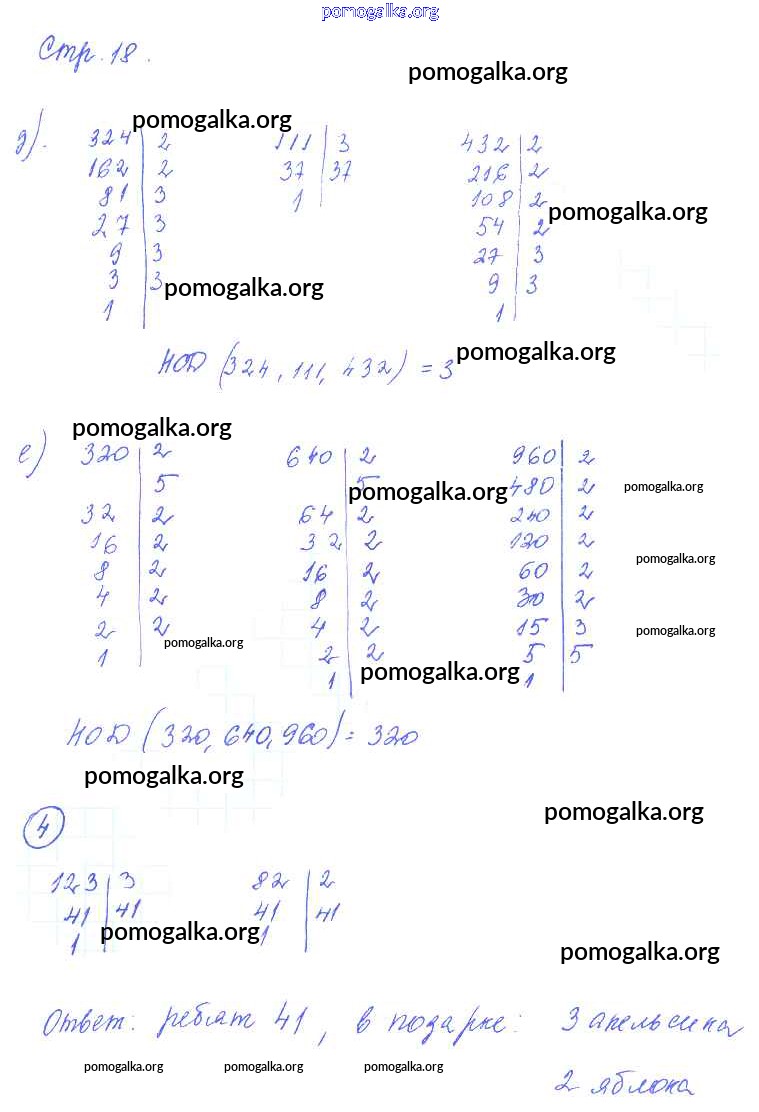 pomogalka.org
Стр. 18.
pomogalka.org
pomogalka.org
д). 324 | 2 111 | 3 432 | 2
162 | 2 37 | 37 216 | 2
81 | 3 1 108 | 2
pomogalka.org
27 | 3 54 | 2
9 | 3 27 | 3
3 | 3 9 | 3
pomogalka.org
1 1
pomogalka.org
НОД (324, 111, 432) = 3
pomogalka.org
е) 320 | 2 640 | 2 960 | 2
5 5 480 | 2
pomogalka.org pomogalka.org
32 | 2 64 | 2 240 | 2
16 | 2 32 | 2 120 | 2
pomogalka.org
8 | 2 16 | 2 60 | 2
4 | 2 8 | 2 30 | 2
2 | 2 4 | 2 15 | 3
pomogalka.org pomogalka.org
1 2 | 2 5 | 5
pomogalka.org
1 1
НОД (320, 640, 960) = 320
pomogalka.org
pomogalka.org
4
123 | 3 82 | 2
41 | 41 41 | 41
pomogalka.org
1 1
pomogalka.org
Ответ: ребят 41, в подарке: 3 апельсина
pomogalka.org pomogalka.org pomogalka.org
2 яблока